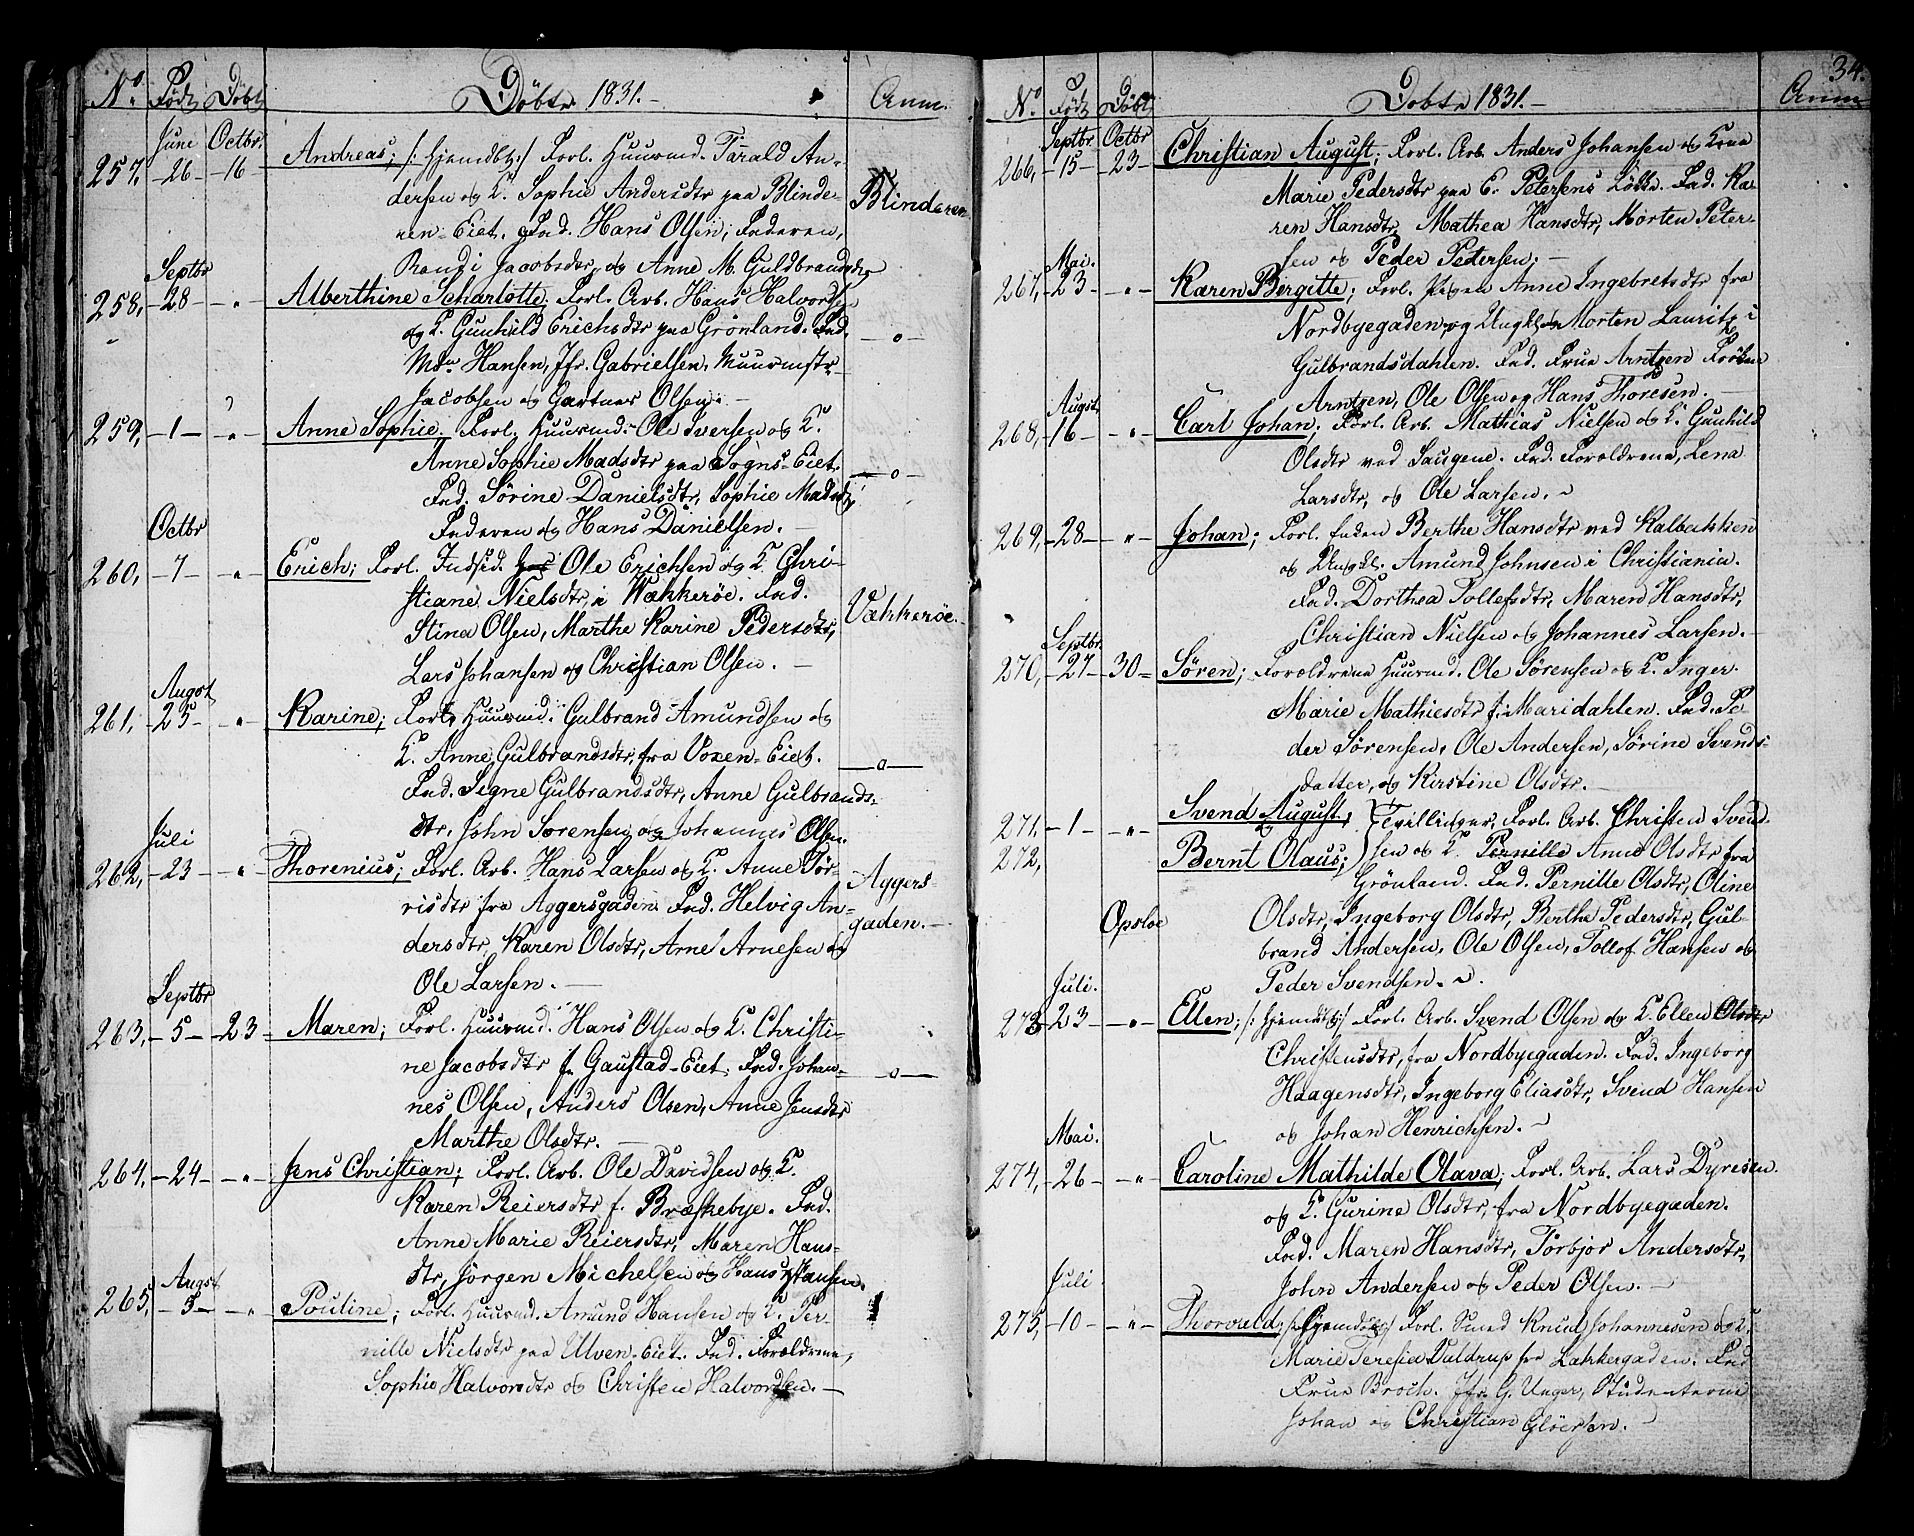 No. Født Døbt Døbte 1831.- Anm.
June Octbr.
257, -26- -16- Andreas; /: hjemdbt:/ Forl. Huusmd. Tarald An=
dersen og K. Sophie Andersdtr paa Blinde= Blinderen
ren-Eiet. Fad. Hans Olsen, Faderen,
Randi Jacobsdtr og Anne M. Guldbrandsdtr
Septbr
258, -28- -"- Alberthine Scharlotte, Forl. Arb. Hans Halvorsen
og K. Gunhild Erichsdtr paa Grönland. Fad. -o-
Hansen, Jfr. Gabrielsen, Muurmstr
Jacobsen og Gartner Olsen.-
259, -1- -"- Anne Sophie. Forl. Huusmd. Ole Iversen og K.
Anne Sophie Madsdtr paa Sogns-Eiet. -o-
Fad. Sörine Danielsdtr, Sophie Madsdtr,
Faderen og Hans Danielsen. -
Octbr
260, -7- -"- Erich; Forl. Indsid. Ole Erichsen og K. Chri-
stiane Nielsdtr, i Wækkeröe. Fad. Vækkeröe.
Stina Olsen, Marthe Karine Pedersdtr,
Lars Johansen og Christian Olsen. -
Augst
261, -25- -"- Karine; Forl. Huusmd. Gulbrand Amundsen og
K. Anne Gulbrandsdtr, fra Voxen-Eiet. -o-
Fad. Signe Gulbrandsdtr, Anne Gulbrands-
dtr, John Sörensen og Johannes Olsen.
Juli
262, -23- -"- Thorenius; Forl. Arb. Hans Larsen og K. Anne Tor- Aggers
risdtr fra Aggersgaden. Fad. Helvig An= gaden.-
dersdtr, Karen Olsdtr, Arne Arnesen og
Ole Larsen. -
Septbr
263, -5- -23- Maren; Forl. Huusmd. Hans Olsen og K. Christi-
ne Jacobsdtr f. Gaustad-Eiet, Fad. Johan= -o-
nes Olsen, Anders Olsen, Anne Jensdtr
Marthe Olsdtr. -
264, -24- -"- Jens Christian; Forl. Arb. Ole Davidsen og K.
Karen Reiersdtr f. Bræskebye. Fad.
Anne Marie Reiersdtr, Maren Hans-
dtr, Jörgen Michelsen og Hans Hansen.
Augst
265, -5- -"- Pouline; Forl. Huusmd. Amund Hansen og K. Per-
nille Nielsdtr paa Ulven-Eiet. Fad. Forældrene,
Sophie Halvorsdtr og Christen Halvorsen. -
34.
No. Født Døbt Døbte 1831.- Anm
Septbr Octbr
266, -15- -23- Christian August; Forl. Arb. Anders Johansen og Kone
Marie Pedersdtr paa E. Petersens Lökke. Fad. Ka-
ren Hansdtr, Mathea Hansdtr, Morten Peter-
sen og Peder Pedersen. -
Mai.
267, -23- -"- Karen Birgitte; Forl. Pigen Anne Ingebretsdtr fra
Nordbyegaden, og Ungkl. Morten Lauritz i
Gulbrandsdahlen. Fad. Frue Arntzen Fröken
Arntzen, Ole Olsen og Hans Thoresen. -
Augst
268, -16- -"- Carl Johan; Forl. Arb. Mathias Nielsen og K. Gunhild
Olsdtr ved Saugene. Fad. Forældrene, Lena
Larsdtr, og Ole Larsen. ~
269, -28- -"- Johan; Forl. Enken Berthe Hansdtr ved Kalbakken
og Ungkl. Amund Johnsen i Christiania.
Fad. Dorthea Tollefsdtr, Maren Hansdtr,
Christian Nielsen og Johannes Larsen. -
Septbr
270, -27- -30- Sören; Forældrene Huusmd. Ole Sörensen og K. Inger
Marie Mathiesdtr f. Maridahlen. Fad. Pe
der Sörensen, Ole Andersen, Sörine Svends-
datter, og Kirstine Olsdtr. -
271, -1- -"- Svend August, } Tvillinger, Forl. Arb. Christen Svend-
272, Bernt Olaus; } sen og K. Pernille Anne Olsdtr fra
Grönland. Fad. Pernille Olsdtr, Oline
Opsloe Olsdtr, Ingeborg Olsdtr, Berthe Pedersdtr, Gul-
brand Andersen, Ole Olsen, Tollof Hansen og
Peder Svendsen. ~.
Juli.
273 -23- -"- Ellen; /: hjemdbt:/ Forl. Arb. Svend Olsen og K. Ellen Olsdtr
Christensdtr, fra Nordbyegaden. Fad. Ingeborg
Haagensdtr, Ingeborg Eliasdtr, Svend Hansen
og Johan Henrichsen. -
Mai.
274, -26- -"- Caroline Mathilde Olava; Forl. Arb. Lars Dyresen
og K. Gurine Olsdtr, fra Nordbyegaden.
Fad. Maren Hansdtr, Torbjor Andersdtr,
John Andersen og Peder Olsen. -
Juli
275, -10- -"- Thorvald; /: hjemdbt:/ Forl. Smed Knud Johannesen og K.
Marie Teresia Valdrup fra Lakkegaden. Fad
Frue Broch. Jfr. G. Unger, Studenterne
Johan og Christian Glöersen. -